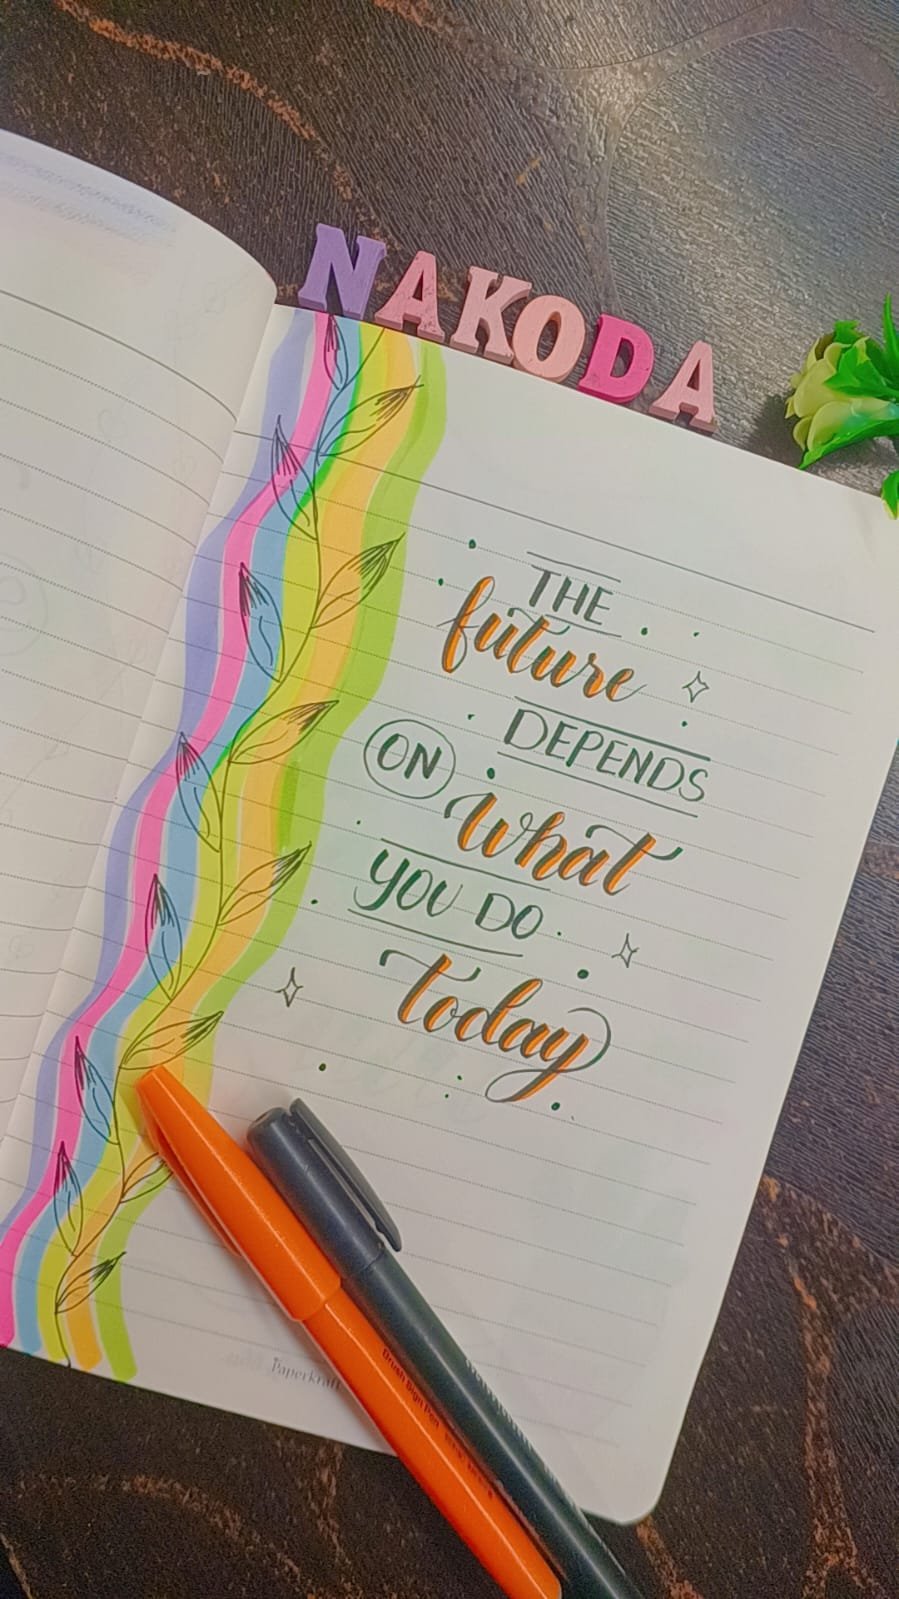 NAKODA
THE
future
DEPENDS
ON
what
YOU DO
today
Paperkraft
Brush Sign Pen